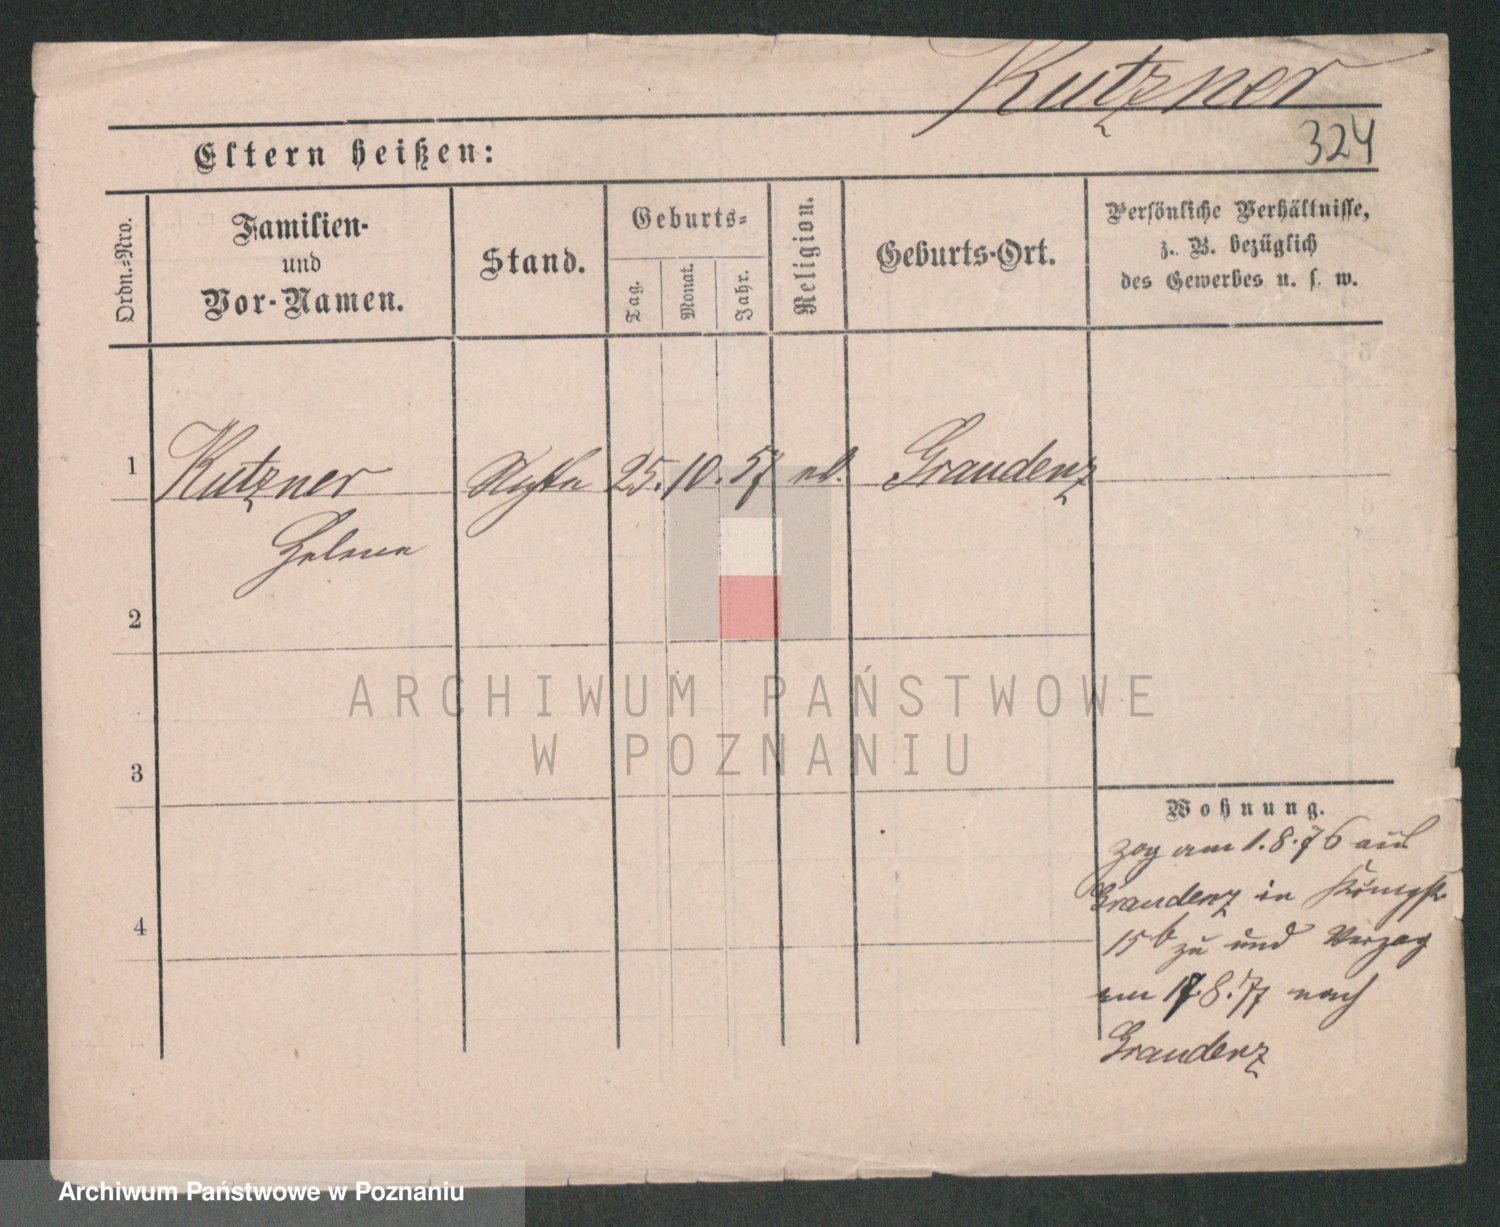 Kutzner
324
Eltern heißen:
Ordn.-Nro.
Familien-
und
Vor-Namen.
Stand.
Geburts-
Tag.
Monat.
Jahr.
Religion.
Geburts-Ort.
Persönliche Verhältnisse,
z. B. bezüglich
des Gewerbes u. s. w.
1
Kutzner 25. 10. 57 Graudenz
Helene
2
3
4
Wohnung.
zog am 1.8.76 aus
Graudenz in Königstr
15b zu und verzog
am 17.8.77 nach
Graudenz
ARCHIWUM PAŃSTWOWE
W POZNANIU
Archiwum Państwowe w Poznaniu